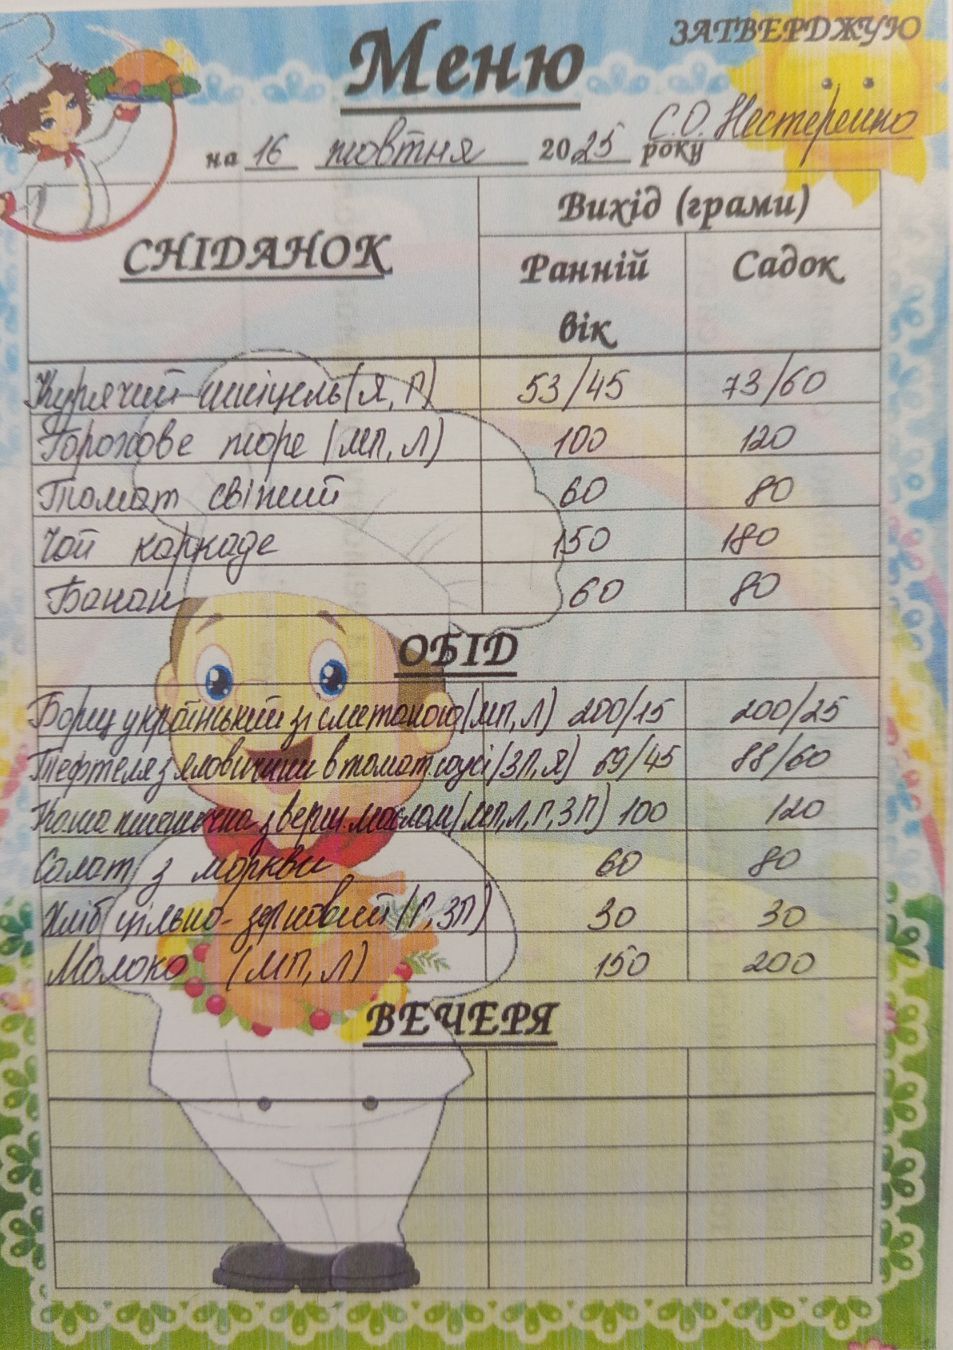 ЗАТВЕРДЖУЮ
Меню
С.О. Нестеренко
на 16 жовтня 2025 року
СНІДАНОК
Вихід (грами)
Ранній вік
Садок
Курячий шніцель (Я, Г) 53/45 73/60
Горохове пюре (МП, Л) 100 120
Томат свіжий 60 80
Чай каркаде 150 180
Банан 60 80
ОБІД
Борщ український зі сметаною (МП, Л) 200/15 200/25
Тефтеля з яловичини в томат. соусі (ЗП, Я) 69/45 88/60
Каша пшенична з верш. маслом (МП, Л, Г, ЗП) 100 120
Салат з моркви 60 80
Хліб цільно-зерновий (Г, ЗП) 30 30
Молоко (МП, Л) 150 200
ВЕЧЕРЯ